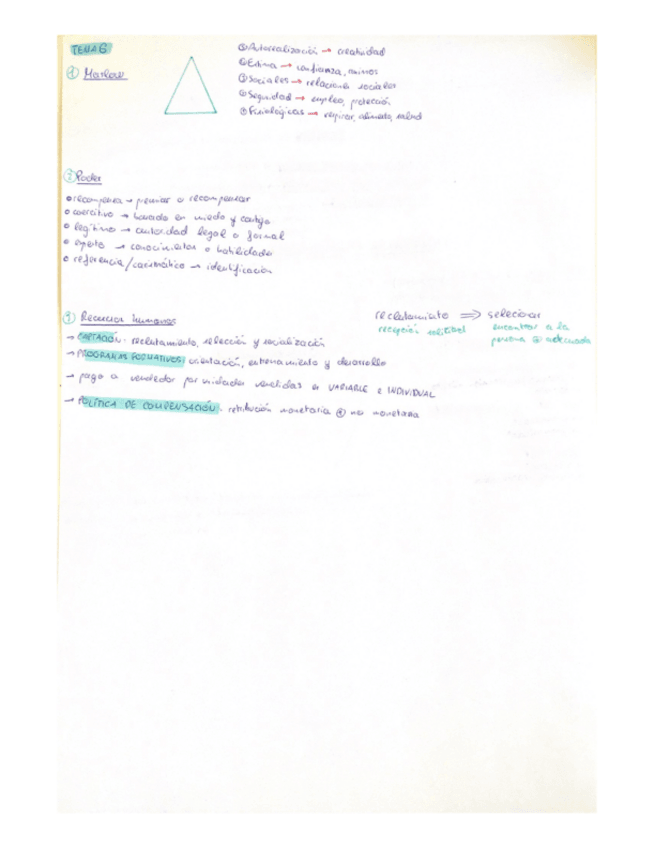 TEMA 6
① Maslow
⑤ Autorealización → creatividad
④ Estima → confianza,
③ Sociales → relaciones sociales
② Seguridad → empleo, protección
① Fisiológicas → respirar, alimento, salud
② Poder
recompensa → premiar o recompensar
coercitivo → basado en miedo y castigo
legítimo → autoridad legal o formal
experto → conocimientos o habilidades
referencia/carismático → identificación
③ Recursos humanos
reclutamiento ⇒ seleccionar
recepción solicitud encontrar a la
persona adecuada
→ CAPTACIÓN: reclutamiento, selección y socialización
→ PROGRAMAS FORMATIVOS: orientación, entrenamiento y desarrollo
→ pago a vendedor por unidades vendidas es VARIABLE e INDIVIDUAL
→ POLÍTICA DE COMPENSACIÓN: retribución monetaria no monetaria